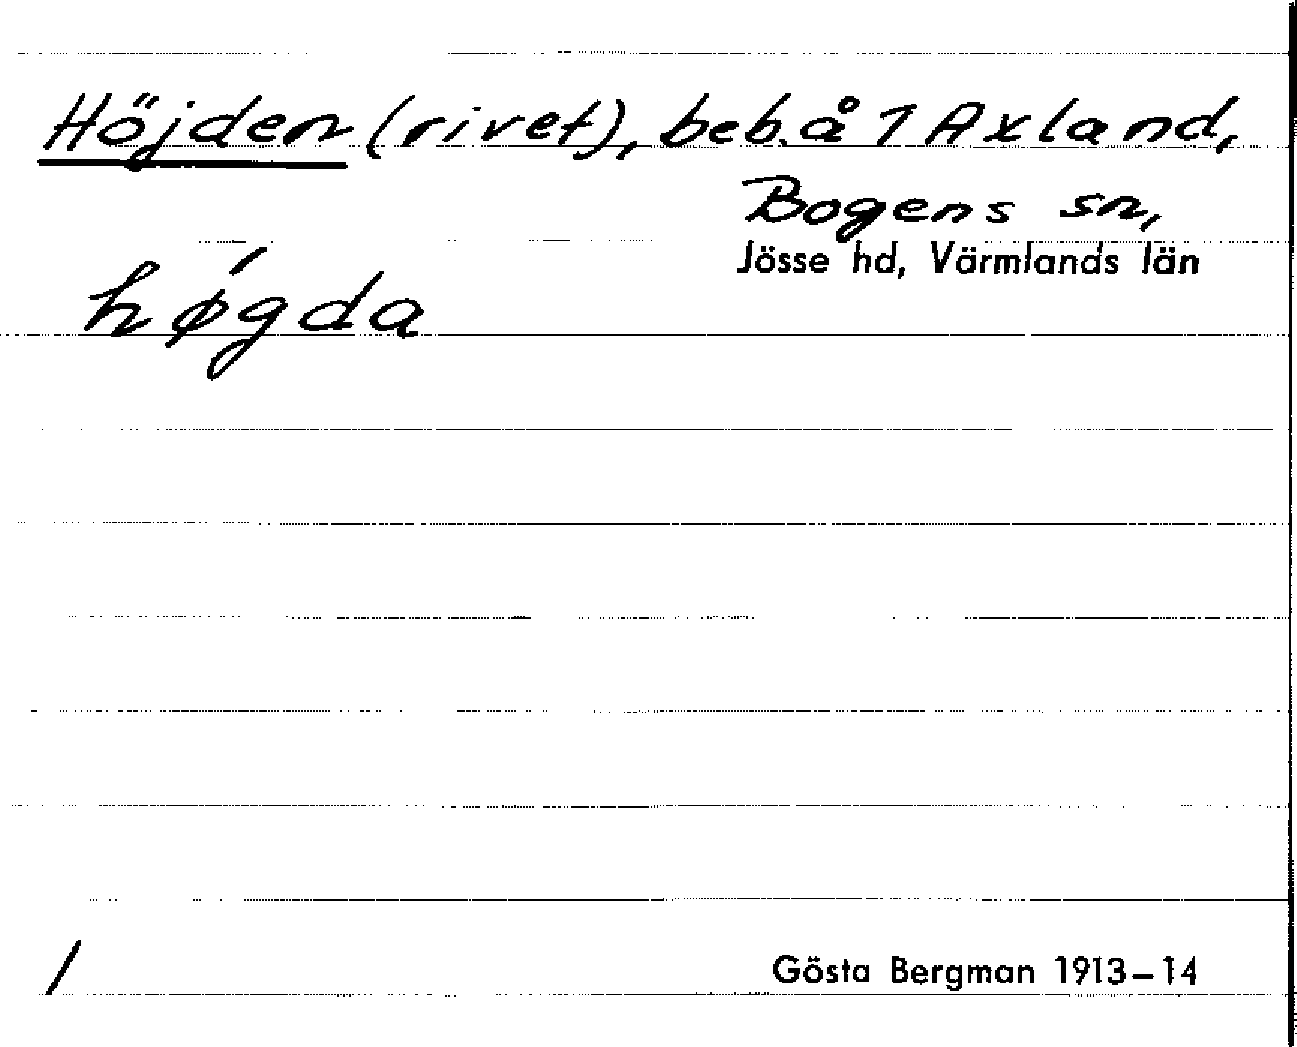 Höjden (rivet), beb. å 1 Axland,
Bogens sn,
Jösse hd, Värmlands län
hǿgda
/ Gösta Bergman 1913–14